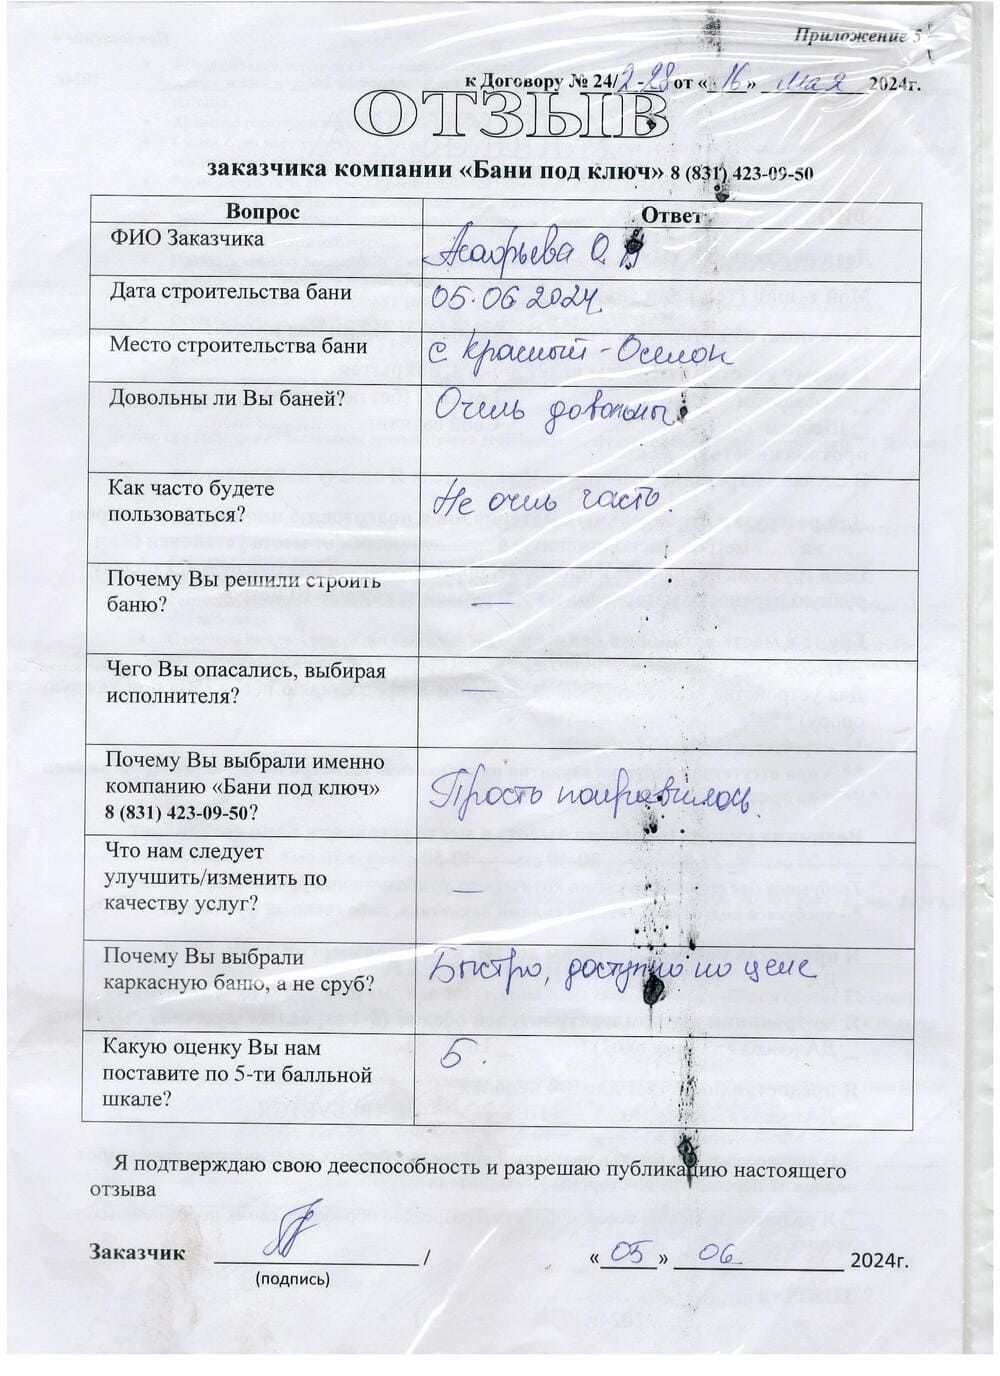 Приложение 5
к Договору № 24/2-28 от «16» мая 2024г.
ОТЗЫВ
заказчика компании «Бани под ключ» 8 (831) 423-09-50
Вопрос Ответ
ФИО Заказчика
О. Н
Дата строительства бани 05.06 2024.
Место строительства бани с Красный-Оселок
Довольны ли Вы баней? Очень довольны.
Как часто будете
пользоваться?
Не очень часто.
Почему Вы решили строить
баню?
—
Чего Вы опасались, выбирая
исполнителя?
—
Почему Вы выбрали именно
компанию «Бани под ключ»
8 (831) 423-09-50?
Прость понравилось.
Что нам следует
улучшить/изменить по
качеству услуг?
—
Почему Вы выбрали
каркасную баню, а не сруб?
Быстро, доступно по цене
Какую оценку Вы нам
поставите по 5-ти балльной
шкале?
5.
Я подтверждаю свою дееспособность и разрешаю публикацию настоящего
отзыва
Заказчик / «05» 06 2024г.
(подпись)